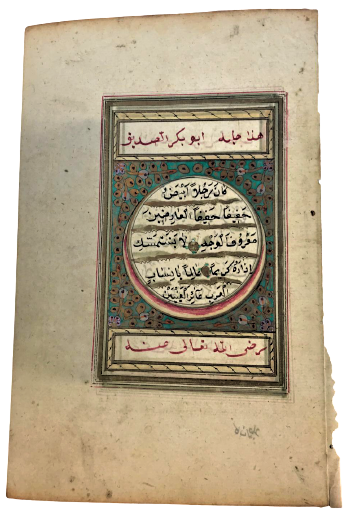 هذا حليه ابو بكر الصديق
كَانَ رَجُلاً اَبْيَضَ
خَفِيفاً خَفِيفَ اَلعَارِضَيْنِ
مَعْرُوقَ اَلوَجْهِ لَا يَسْتَمْسِكُ
اِزَارَهُ كَرِيماً عَالِماً بِاَنْسَابِ
الْعَرَبِ غَائِرَ الْعَيْنَيْنِ
رضى الله تعالى عنه